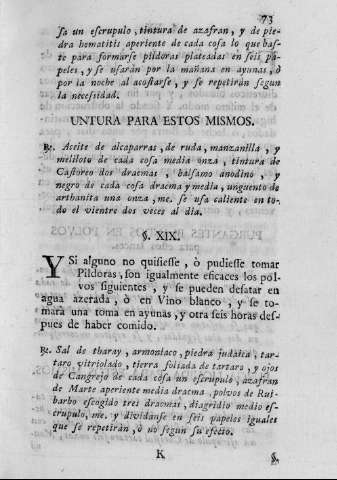 73
sa un escrupulo, tintura de azafran, y de pie-
dra hematitis aperiente de cada cosa lo que bas-
te para formarse pildoras plateadas en seis pa-
peles, y se usarán por la mañana en ayunas, ò
por la noche al acostarse, y se repetirán segun
la necesidad.
UNTURA PARA ESTOS MISMOS.
℞. Aceite de alcaparras, de ruda, manzanilla, y
meliloto de cada cosa media onza, tintura de
Castoreo dos dracmas, balsamo anodino, y
negro de cada cosa dracma y media, unguento de
arthanita una onza, me. se usa caliente en to-
do el vientre dos veces al dia.
§. XIX.
Y Si alguno no quisiesse, ò pudiesse tomar
Pildoras, son igualmente eficaces los pol-
vos siguientes, y se pueden desatar en
agua azerada, ò en Vino blanco, y se to-
mará una toma en ayunas, y otra seis horas des-
pues de haber comido.
℞. Sal de tharay, armoniaco, piedra judaica, tar-
taro vitriolado, tierra foliada de tartaro, y ojos
de Cangrejo de cada cosa un escrupulo, azafran
de Marte aperiente media dracma, polvos de Rui-
barbo escogido tres dracmas, diagridio medio es-
crupulo, me. y dividanse en seis papeles iguales
que se repetirán, ò no segun su efecto.
K
§.